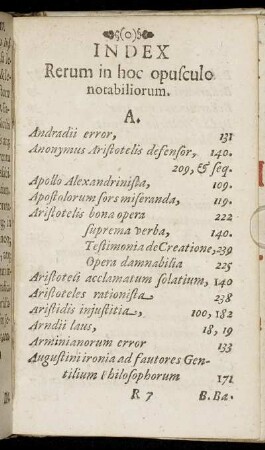 (0)
INDEX
Rerum in hoc opuſculo
notabiliorum.
A.
Andradii error, 131
Anonymus Ariſtotelis defenſor, 140.
209, & ſeq.
Apollo Alexandriniſta, 109.
Apoſtolorum ſors miſeranda, 119.
Ariſtotelis bona opera 222
ſuprema verba, 140.
Teſtimonia de Creatione, 239
Opera damnabilia 225
Ariſtoteli acclamatum ſolatium, 140
Ariſtoteles rationiſta 238
Ariſtidis injuſtitia, 100, 182
Arndii laus, 18, 19
Arminianorum error 133
Auguſtini ironia ad fautores Gen-
tilium Philoſophorum 171
R 7 B. Ba.